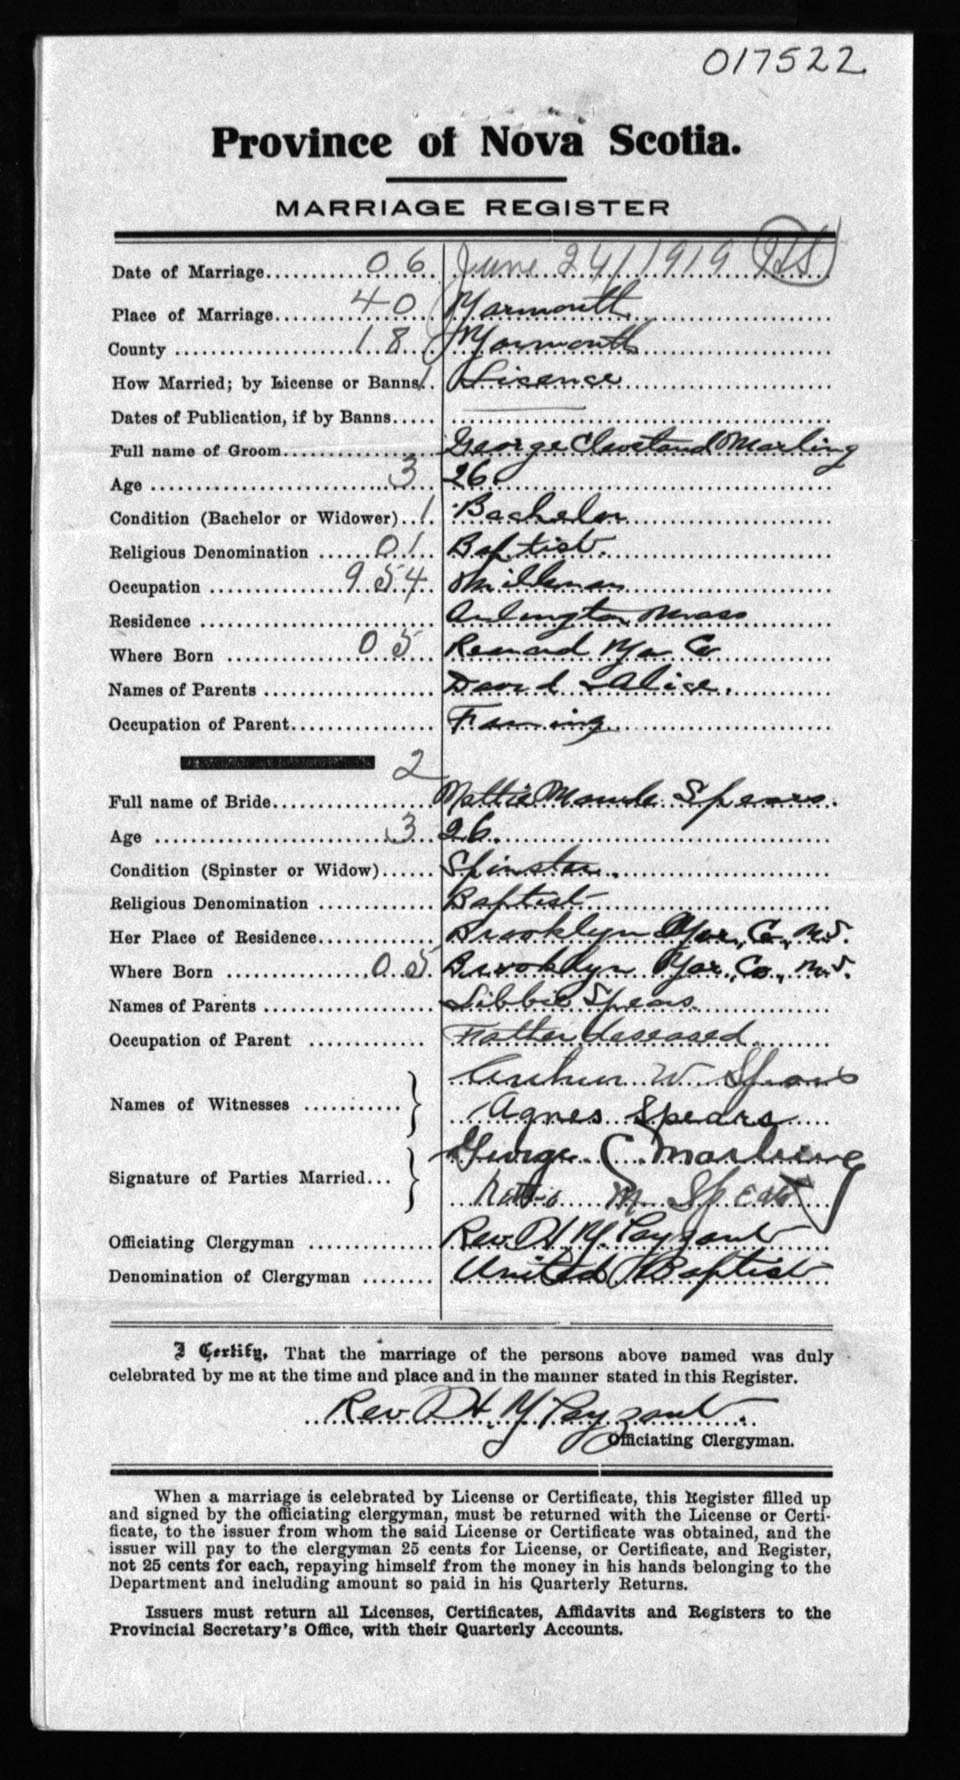 017522
Province of Nova Scotia.
MARRIAGE REGISTER
Date of Marriage 06 June 24/1919
Place of Marriage 40 Yarmouth
County 18 Yarmouth
How Married; by License or Banns 1 Lisence
Dates of Publication, if by Banns
Full name of Groom George Cleveland Marling
Age 3 26
Condition (Bachelor or Widower) 1 Bachelor
Religious Denomination 01 Baptist
Occupation 954 Milkman
Residence Arlington Mass
Where Born 05 Yar Co
Names of Parents David & Alice
Occupation of Parent Farming
2
Full name of Bride Mattie Maude Spears.
Age 3 26.
Condition (Spinster or Widow) Spinster.
Religious Denomination Baptist
Her Place of Residence Brooklyn Yar, Co, N.S.
Where Born 05 Brooklyn Yar, Co, N.S.
Names of Parents Libbie Spears
Occupation of Parent Father deseased
Arthur W Spears
Names of Witnesses
Agnes Spears
George C Marling
Signature of Parties Married
M Spears
Officiating Clergyman Rev H Y Payzant
Denomination of Clergyman United Baptist
I Certify, That the marriage of the persons above named was duly
celebrated by me at the time and place and in the manner stated in this Register.
Rev H Y Payzant.
Officiating Clergyman.
When a marriage is celebrated by License or Certificate, this Register filled up
and signed by the officiating clergyman, must be returned with the License or Certi-
ficate, to the issuer from whom the said License or Certificate was obtained, and the
issuer will pay to the clergyman 25 cents for License, or Certificate, and Register,
not 25 cents for each, repaying himself from the money in his hands belonging to the
Department and including amount so paid in his Quarterly Returns.
Issuers must return all Licenses, Certificates, Affidavits and Registers to the
Provincial Secretary's Office, with their Quarterly Accounts.